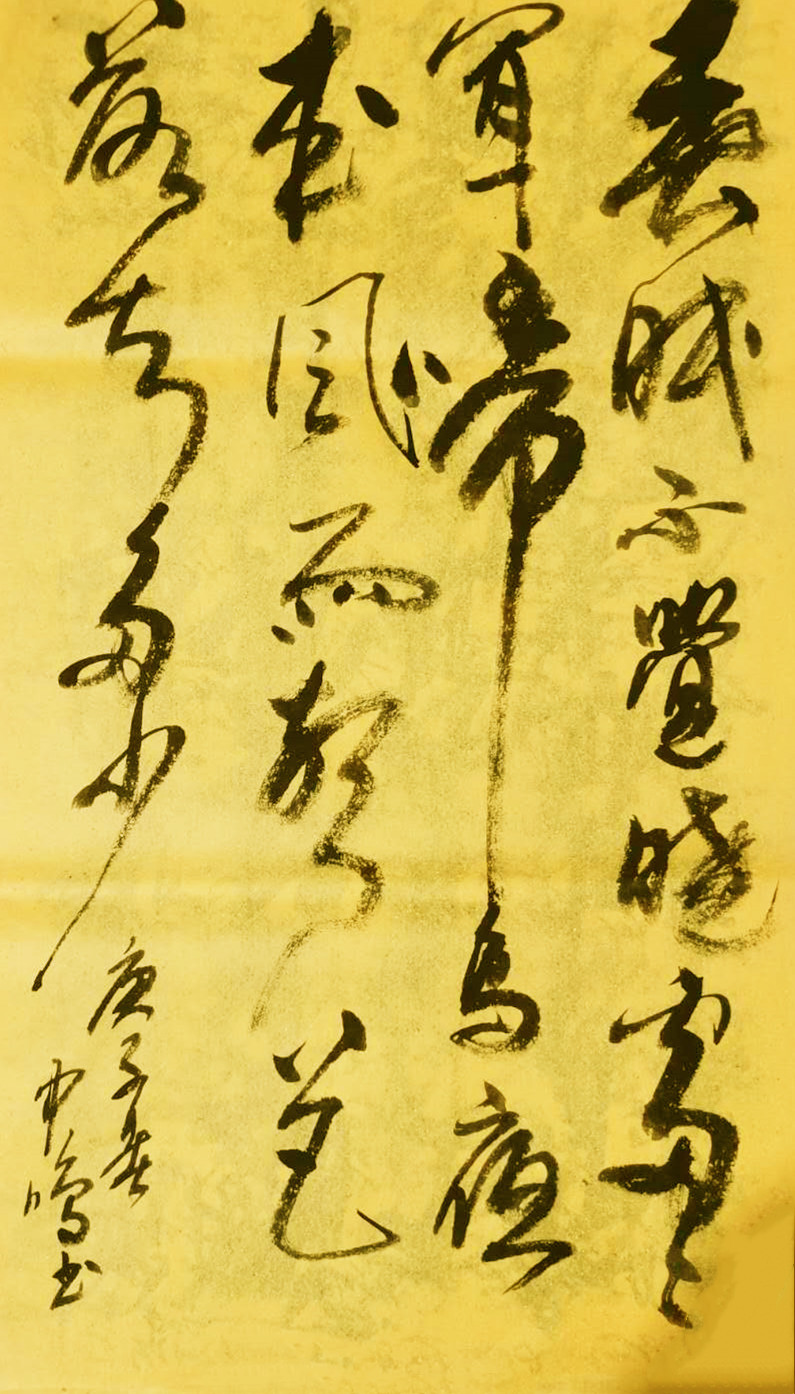 春眠不覺曉處々
聞啼鳥夜
来風雨聲花
落知多少
庚子春
中鳴书